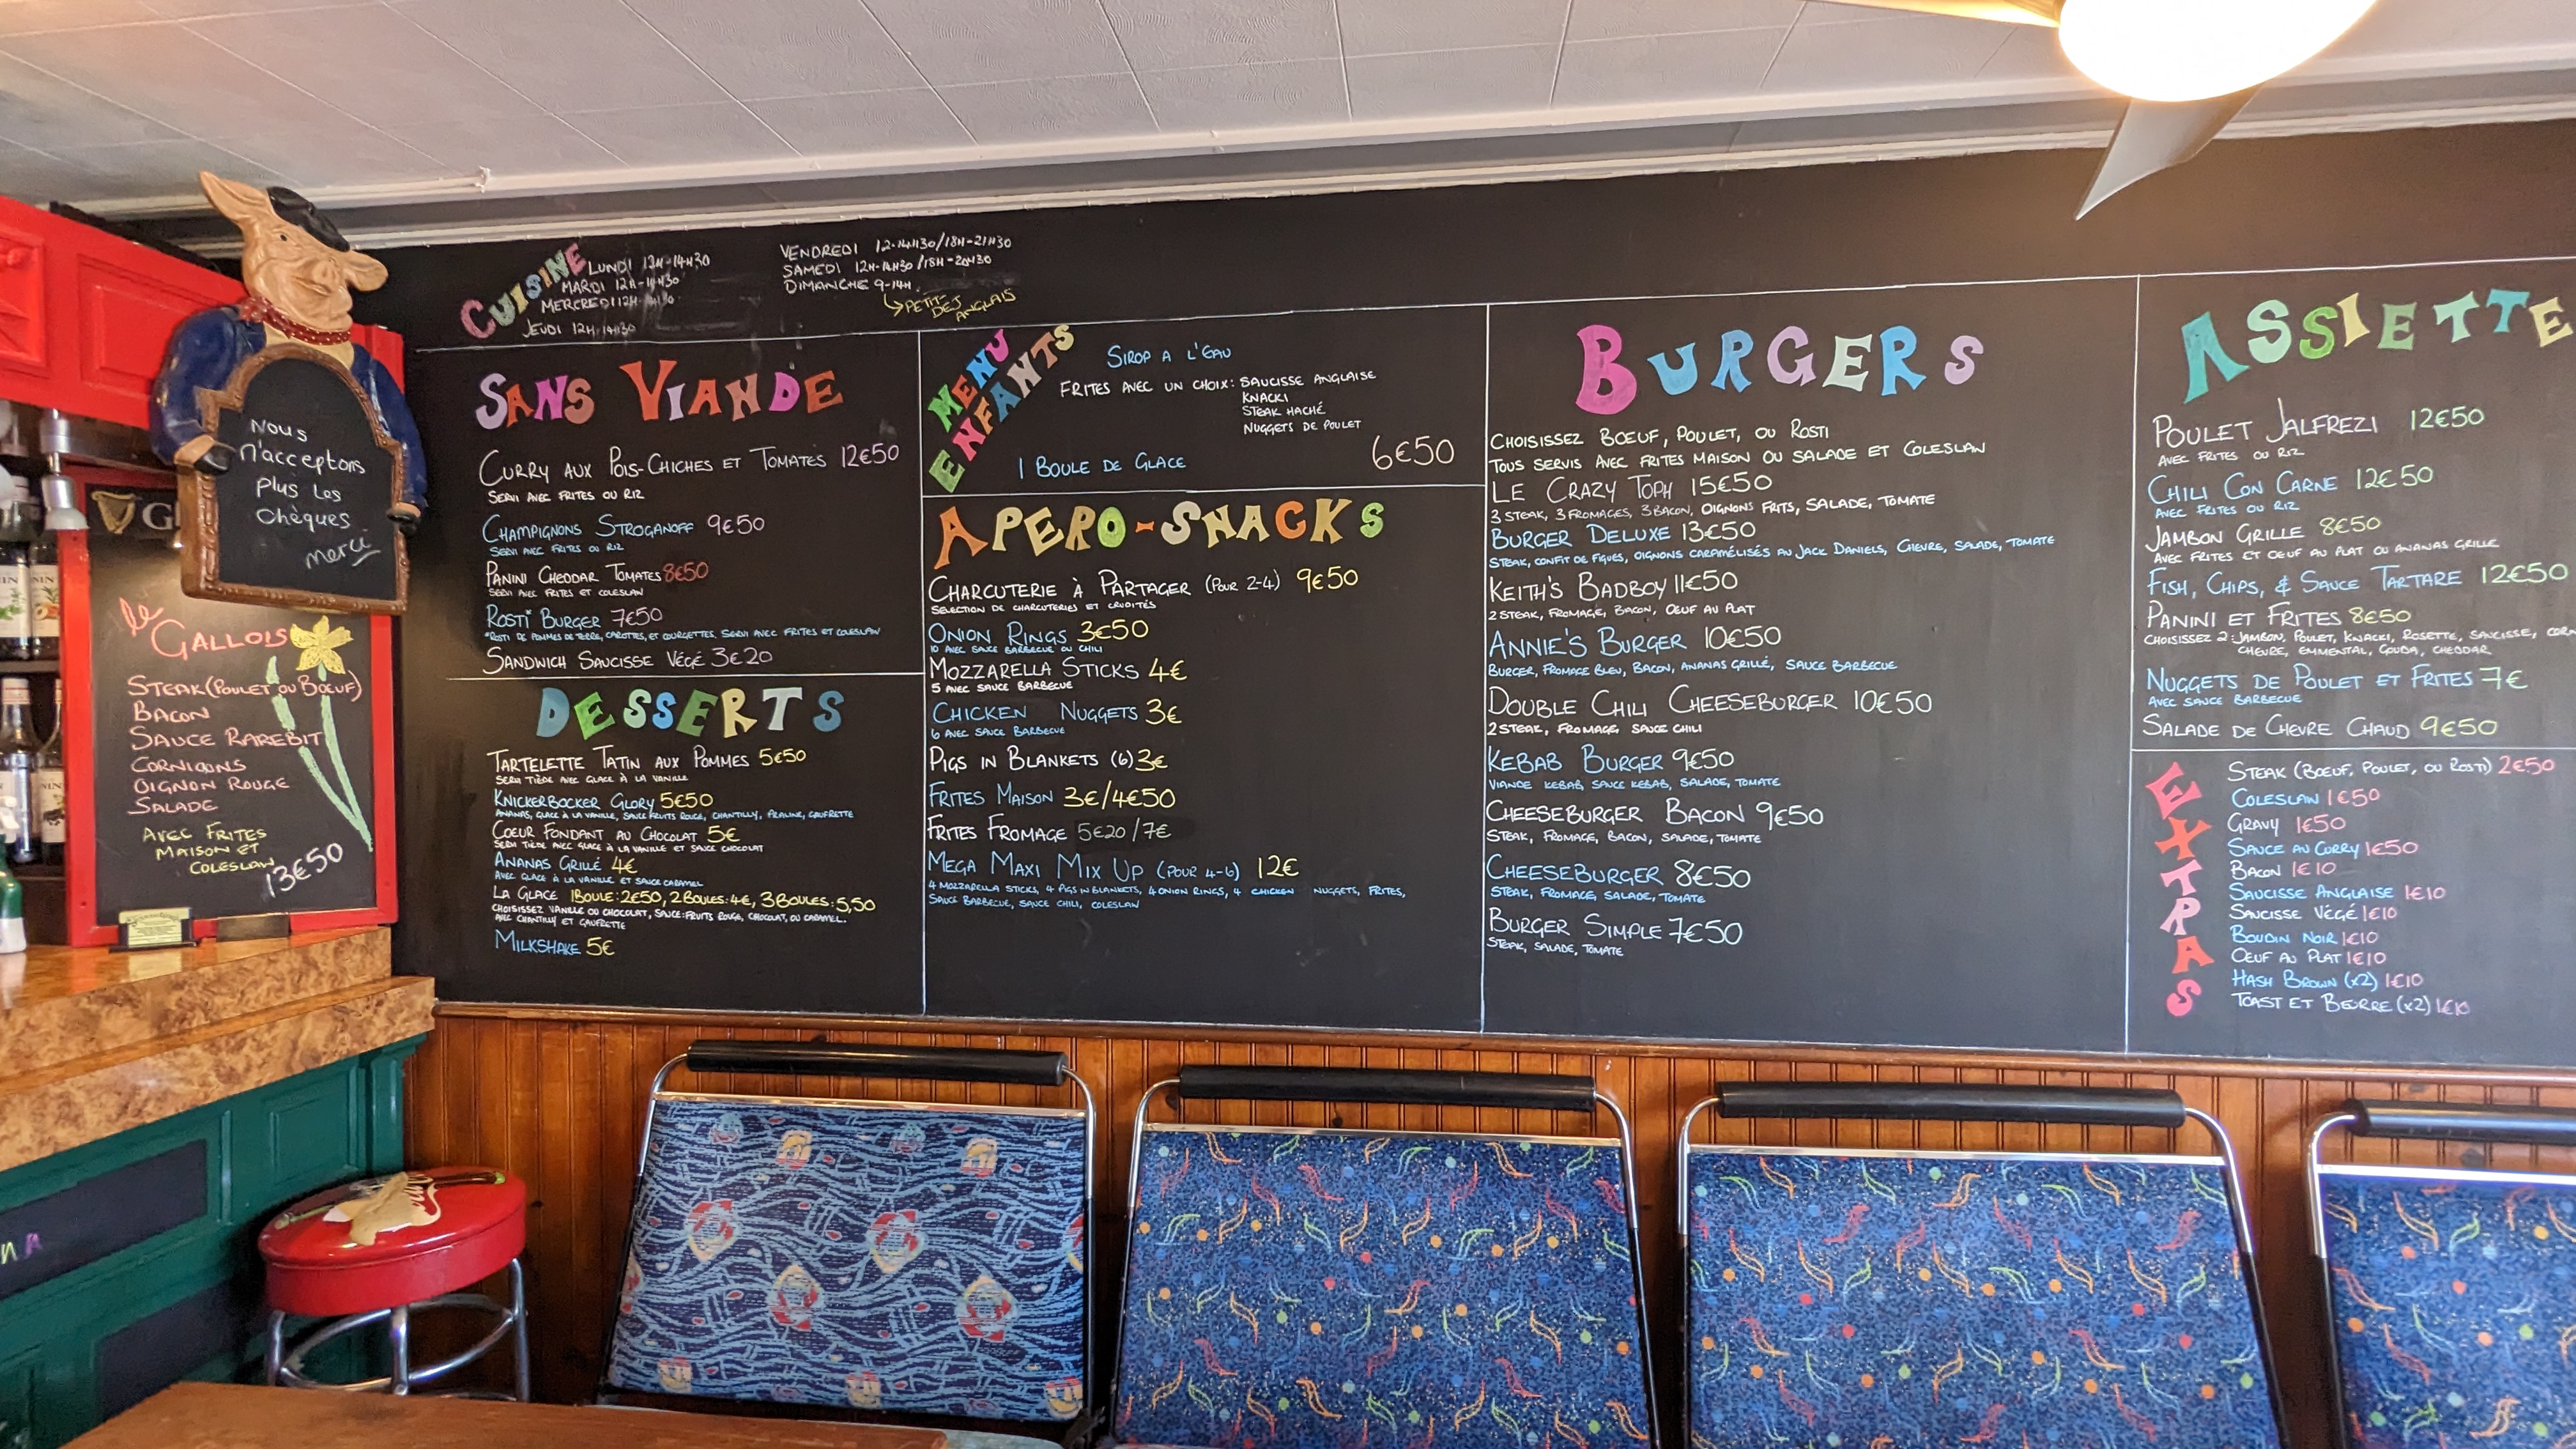 CUISINE
LUNDI 12H-14H30
MARDI 12H-14H30
MERCREDI 12H-14H30
JEUDI 12H-14H30
VENDREDI 12-14H30/18H-21H30
SAMEDI 12H-14H30/18H-20H30
DIMANCHE 9-14H
PETIT
DEJ
ANGLAIS
Nous
n'acceptons
plus les
chèques
merci
G
le
GALLOIS
STEAK (POULET OU BOEUF)
BACON
SAUCE RAREBIT
CORNICONS
OIGNON ROUGE
SALADE
AVEC FRITES
MAISON ET
COLESLAW
13€50
SANS VIANDE
CURRY AUX POIS-CHICHES ET TOMATES 12€50
SERVI AVEC FRITES OU RIZ
CHAMPIGNONS STROGANOFF 9€50
SERVI AVEC FRITES OU RIZ
PANINI CHEDDAR TOMATES 8€50
SERVI AVEC FRITES ET COLESLAW
ROSTI* BURGER 7€50
*ROSTI DE POMMES DE TERRE, CAROTTES, ET COURGETTES. SERVI AVEC FRITES ET COLESLAW
SANDWICH SAUCISSE VÉGÉ 3€20
DESSERTS
TARTELETTE TATIN AUX POMMES 5€50
SERVI TIÈDE AVEC GLACE À LA VANILLE
KNICKERBOCKER GLORY 5€50
ANANAS, GLACE À LA VANILLE, SAUCE FRUITS ROUGE, CHANTILLY, PRALINE, GAUFRETTE
COEUR FONDANT AU CHOCOLAT 5€
SERVI TIÈDE AVEC GLACE À LA VANILLE ET SAUCE CHOCOLAT
ANANAS GRILLÉ 4€
AVEC GLACE À LA VANILLE ET SAUCE CARAMEL
LA GLACE 1BOULE: 2€50, 2BOULES: 4€, 3BOULES: 5,50
CHOISISSEZ VANILLE OU CHOCOLAT, SAUCE: FRUITS ROUGE, CHOCOLAT, OU CARAMEL.
AVEC CHANTILLY ET GAUFRETTE
MILKSHAKE 5€
MENU
ENFANTS
SIROP A L'EAU
FRITES AVEC UN CHOIX: SAUCISSE ANGLAISE
KNACKI
STEAK HACHÉ
NUGGETS DE POULET
1 BOULE DE GLACE
6€50
APERO-SNACKS
CHARCUTERIE À PARTAGER (POUR 2-4) 9€50
SELECTION DE CHARCUTERIES ET CRUDITÉS
ONION RINGS 3€50
10 AVEC SAUCE BARBECUE OU CHILI
MOZZARELLA STICKS 4€
5 AVEC SAUCE BARBECUE
CHICKEN NUGGETS 3€
6 AVEC SAUCE BARBECUE
PIGS IN BLANKETS (6) 3€
FRITES MAISON 3€/4€50
FRITES FROMAGE 5€20/7€
MEGA MAXI MIX UP (POUR 4-6) 12€
4 MOZZARELLA STICKS, 4 PIGS IN BLANKETS, 4 ONION RINGS, 4 CHICKEN NUGGETS, FRITES,
SAUCE BARBECUE, SAUCE CHILI, COLESLAW
BURGERS
CHOISISSEZ BOEUF, POULET, OU ROSTI
TOUS SERVIS AVEC FRITES MAISON OU SALADE ET COLESLAW
LE CRAZY TOPH 15€50
3 STEAK, 3 FROMAGES, 3 BACON, OIGNONS FRITS, SALADE, TOMATE
BURGER DELUXE 13€50
STEAK, CONFIT DE FIGUES, OIGNONS CARAMÉLISÉS AU JACK DANIELS, CHEVRE, SALADE, TOMATE
KEITH'S BADBOY 11€50
2 STEAK, FROMAGE, BACON, OEUF AU PLAT
ANNIE'S BURGER 10€50
BURGER, FROMAGE BLEU, BACON, ANANAS GRILLÉ, SAUCE BARBECUE
DOUBLE CHILI CHEESEBURGER 10€50
2 STEAK, FROMAGE, SAUCE CHILI
KEBAB BURGER 9€50
VIANDE KEBAB, SAUCE KEBAB, SALADE, TOMATE
CHEESEBURGER BACON 9€50
STEAK, FROMAGE, BACON, SALADE, TOMATE
CHEESEBURGER 8€50
STEAK, FROMAGE, SALADE, TOMATE
BURGER SIMPLE 7€50
STEAK, SALADE, TOMATE
ASSIETTE
POULET JALFREZI 12€50
AVEC FRITES OU RIZ
CHILI CON CARNE 12€50
AVEC FRITES OU RIZ
JAMBON GRILLE 8€50
AVEC FRITES ET OEUF AU PLAT OU ANANAS GRILLE
FISH, CHIPS, & SAUCE TARTARE 12€50
PANINI ET FRITES 8€50
CHOISISSEZ 2: JAMBON, POULET, KNACKI, ROSETTE, SAUCISSE, COR
CHEVRE, EMMENTAL, GOUDA, CHEDDAR
NUGGETS DE POULET ET FRITES 7€
AVEC SAUCE BARBECUE
SALADE DE CHEVRE CHAUD 9€50
EXTRAS
STEAK (BOEUF, POULET, OU ROSTI) 2€50
COLESLAW 1€50
GRAVY 1€50
SAUCE AU CURRY 1€50
BACON 1€10
SAUCISSE ANGLAISE 1€10
SAUCISSE VÉGÉ 1€10
BOUDIN NOIR 1€10
OEUF AU PLAT 1€10
HASH BROWN (x2) 1€10
TOAST ET BEURRE (x2) 1€10